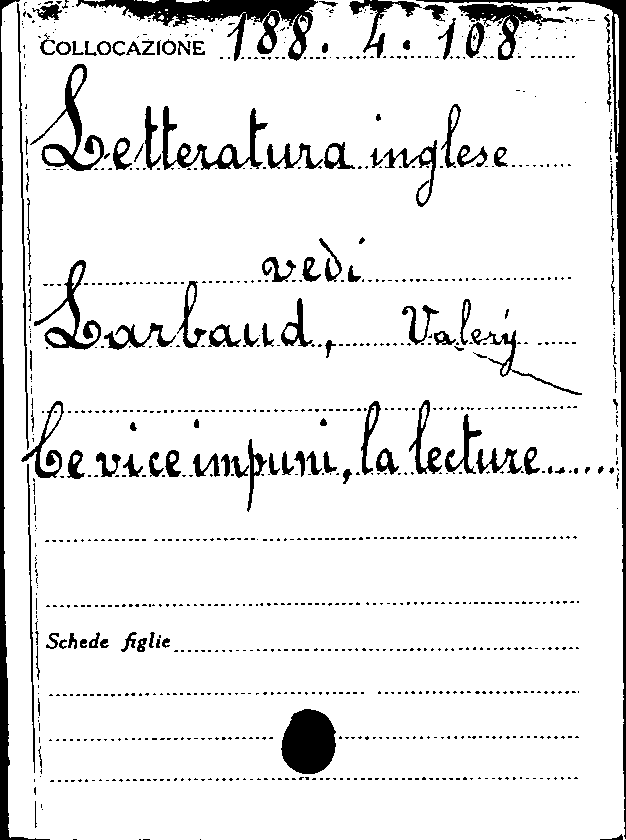 COLLOCAZIONE 188. 4. 108
Letteratura inglese
vedi
Larbaud, Valery
Ce vice impuni, la lecture......
Schede figlie